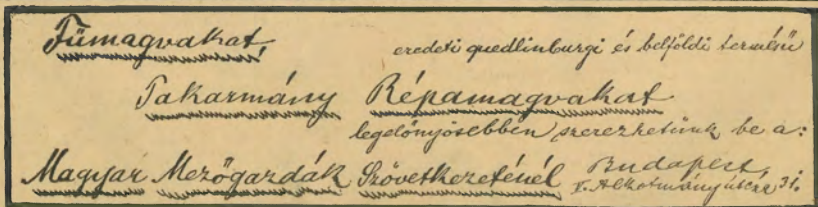 Fűmagvakat, eredeti quedlinburgi és belföldi termésű
Takarmány Répamagvakat
legelőnyösebben szerezhetünk be a:
Magyar Mezőgazdák Szövetkezeténél Budapest,
V. Alkotmány utcza 31.